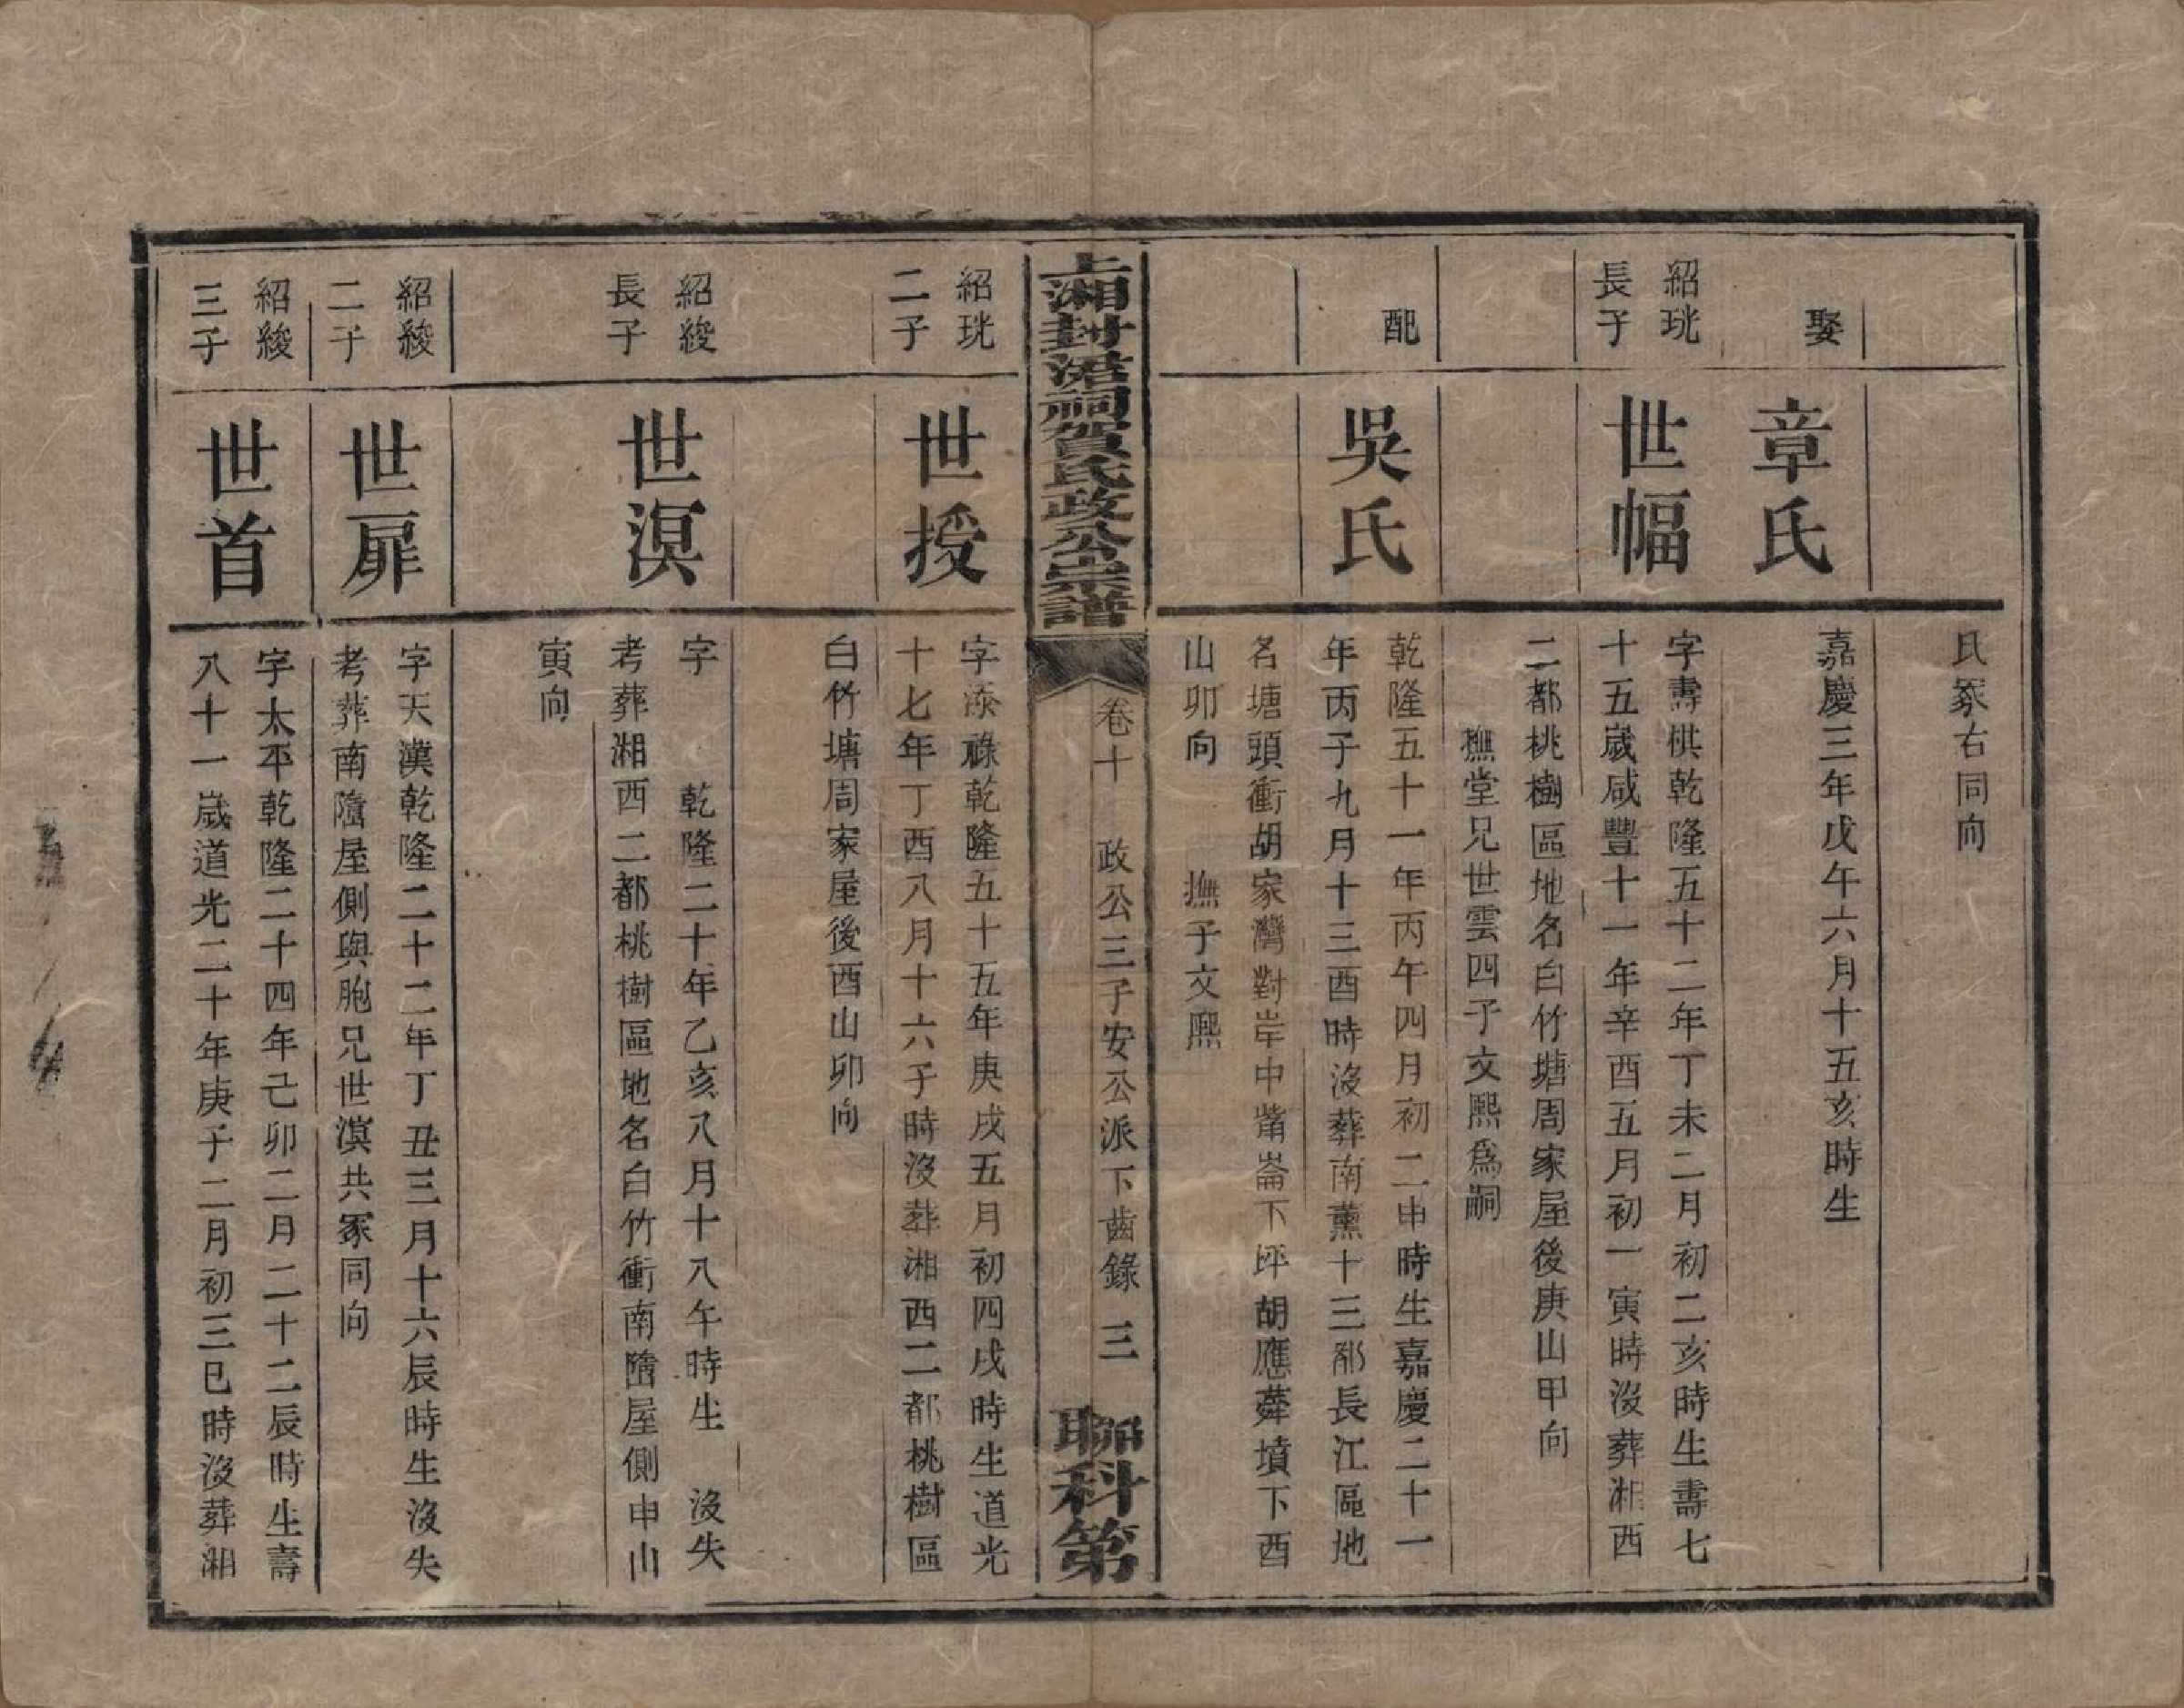 氏冢右同向
娶
章氏
嘉慶三年戊午六月十五亥時生
紹珖
長子
世幅
字壽棋乾隆五十二年丁未二月初二亥時生壽七
十五歲咸豐十一年辛酉五月初一寅時沒葬湘西
二都桃樹區地名白竹塘周家屋後庚山甲向
撫堂兄世雲四子文熙爲嗣
配
吳氏
乾隆五十一年丙午四月初二申時生嘉慶二十一
年丙子九月十三酉時沒葬南薰十三都長江區地
名塘頭衝胡家灣對岸中嘴崙下坪胡應蕣墳下酉
山卯向 撫子文熙
上湘封湛祠賀氏政公宗譜
卷十 政公三子安公派下齒錄 三
聯科第
紹珖
二子
世授
字添祿乾隆五十五年庚戌五月初四戌時生道光
十七年丁酉八月十六子時沒葬湘西二都桃樹區
白竹塘周家屋後酉山卯向
紹綾
長子
世溟
字 乾隆二十年乙亥八月十八午時生 沒失
考葬湘西二都桃樹區地名白竹衝南牆屋側申山
寅向
紹綾
二子
世扉
字天漢乾隆二十二年丁丑三月十六辰時生沒失
考葬南牆屋側與胞兄世溟共冢同向
紹綾
三子
世首
字太平乾隆二十四年己卯二月二十二辰時生壽
八十一歲道光二十年庚子二月初三巳時沒葬湘